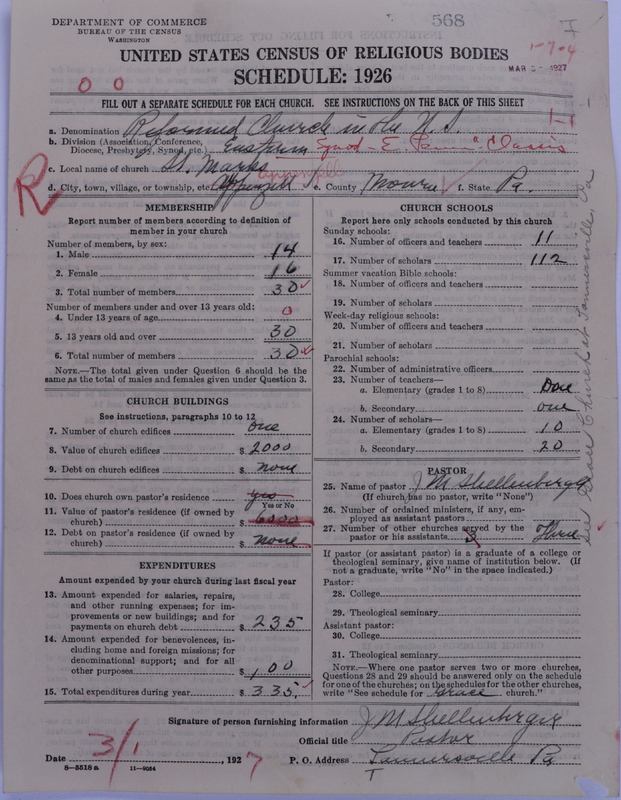 DEPARTMENT OF COMMERCE
BUREAU OF THE CENSUS
WASHINGTON
568
1-7-4
MAR 1927
UNITED STATES CENSUS OF RELIGIOUS BODIES
SCHEDULE: 1926
0 0
FILL OUT A SEPARATE SCHEDULE FOR EACH CHURCH. SEE INSTRUCTIONS ON THE BACK OF THIS SHEET
1-1
a. Denomination Reformed Church in the U.S.
b. Division (Association, Conference, Diocese, Presbytery, Synod, etc.) Eastern Synod - E. Penn "Classis
c. Local name of church St. Marks
d. City, town, village, or township, etc. Appenzell e. County Monroe f. State Pa.
R
MEMBERSHIP
Report number of members according to definition of member in your church
Number of members, by sex:
1. Male 14
2. Female 16
3. Total number of members 30
Number of members under and over 13 years old:
4. Under 13 years of age 0
5. 13 years old and over 30
6. Total number of members 30
NOTE.—The total given under Question 6 should be the same as the total of males and females given under Question 3.
CHURCH BUILDINGS
See instructions, paragraphs 10 to 12
7. Number of church edifices one
8. Value of church edifices $ 2000
9. Debt on church edifices $ none
10. Does church own pastor's residence yes
Yes or No
11. Value of pastor's residence (if owned by church) $ 6000
12. Debt on pastor's residence (if owned by church) $ none
EXPENDITURES
Amount expended by your church during last fiscal year
13. Amount expended for salaries, repairs, and other running expenses; for improvements or new buildings; and for payments on church debt $ 235
14. Amount expended for benevolences, including home and foreign missions; for denominational support; and for all other purposes $ 100
15. Total expenditures during year $ 335
CHURCH SCHOOLS
Report here only schools conducted by this church
Sunday schools:
16. Number of officers and teachers 11
17. Number of scholars 112
Summer vacation Bible schools:
18. Number of officers and teachers
19. Number of scholars
Week-day religious schools:
20. Number of officers and teachers
21. Number of scholars
Parochial schools:
22. Number of administrative officers
23. Number of teachers—
a. Elementary (grades 1 to 8)
b. Secondary one
24. Number of scholars—
a. Elementary (grades 1 to 8) 10
b. Secondary 20
PASTOR
25. Name of pastor J M Shellenberger
(If church has no pastor, write "None")
26. Number of ordained ministers, if any, employed as assistant pastors
27. Number of other churches served by the pastor or his assistants 3 Three
If pastor (or assistant pastor) is a graduate of a college or theological seminary, give name of institution below. (If not a graduate, write "No" in the space indicated.)
Pastor:
28. College
29. Theological seminary
Assistant pastor:
30. College
31. Theological seminary
NOTE.—Where one pastor serves two or more churches, Questions 28 and 29 should be answered only on the schedule for one of the churches; on the schedules for the other churches, write "See schedule for Grace church."
See Grace Church at Tannersville Pa
Signature of person furnishing information J M Shellenberger
Official title Pastor
Date 3/1, 1927
P. O. Address Tannersville Pa
8—5518 a 11—9064